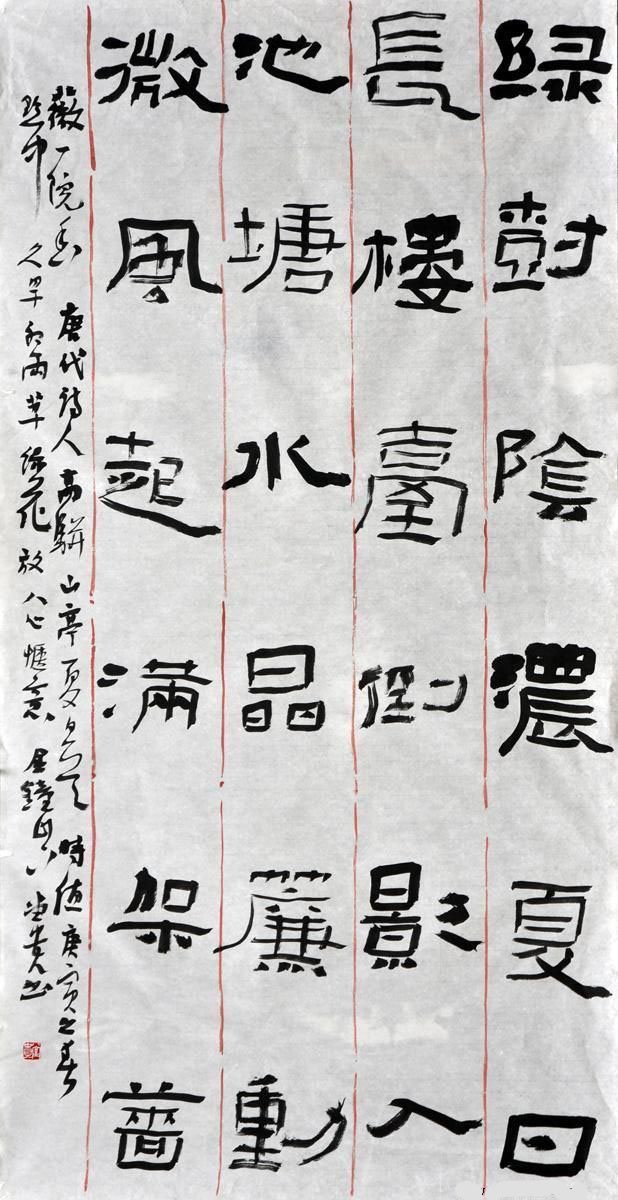 綠樹陰濃夏日
長樓臺倒影入
池塘水晶簾動
微風起滿架薔
薇一院香 唐代詩人高駢山亭夏日 時值庚寅之春
久旱 雨草綠花放人心愜意 書